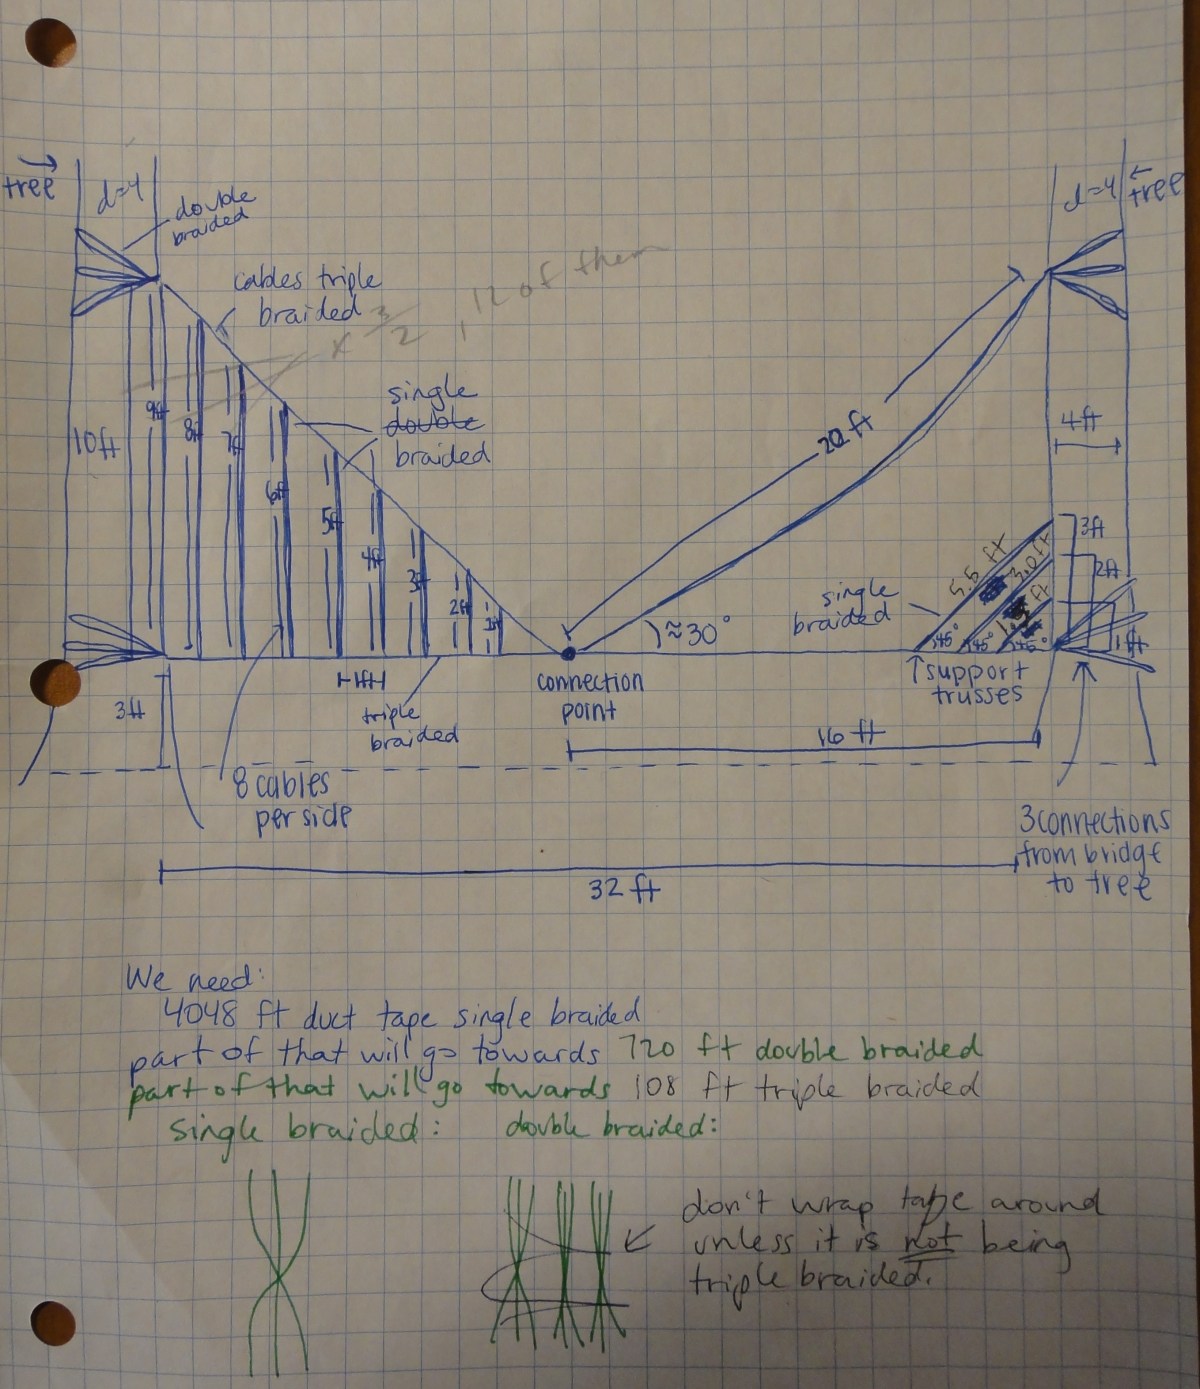 tree
d=4
double
braided
cables triple
braided
x 3/2 , 12 of them
single
double
braided
10ft
9ft
8ft
7ft
6ft
5ft
4ft
3ft
2ft
1ft
20 ft
d=4
tree
4ft
3ft
2ft
1ft
5.5 ft
3.0ft
ft
single
braided
45°
45°
45°
≈30°
connection
point
↑support
trusses
1ft
triple
braided
3ft
16 ft
8 cables
per side
3 connections
from bridge
to tree
32 ft
We need:
4048 ft duct tape single braided
part of that will go towards 720 ft double braided
part of that will go towards 108 ft triple braided
single braided: double braided:
don't wrap tape around
unless it is not being
triple braided.